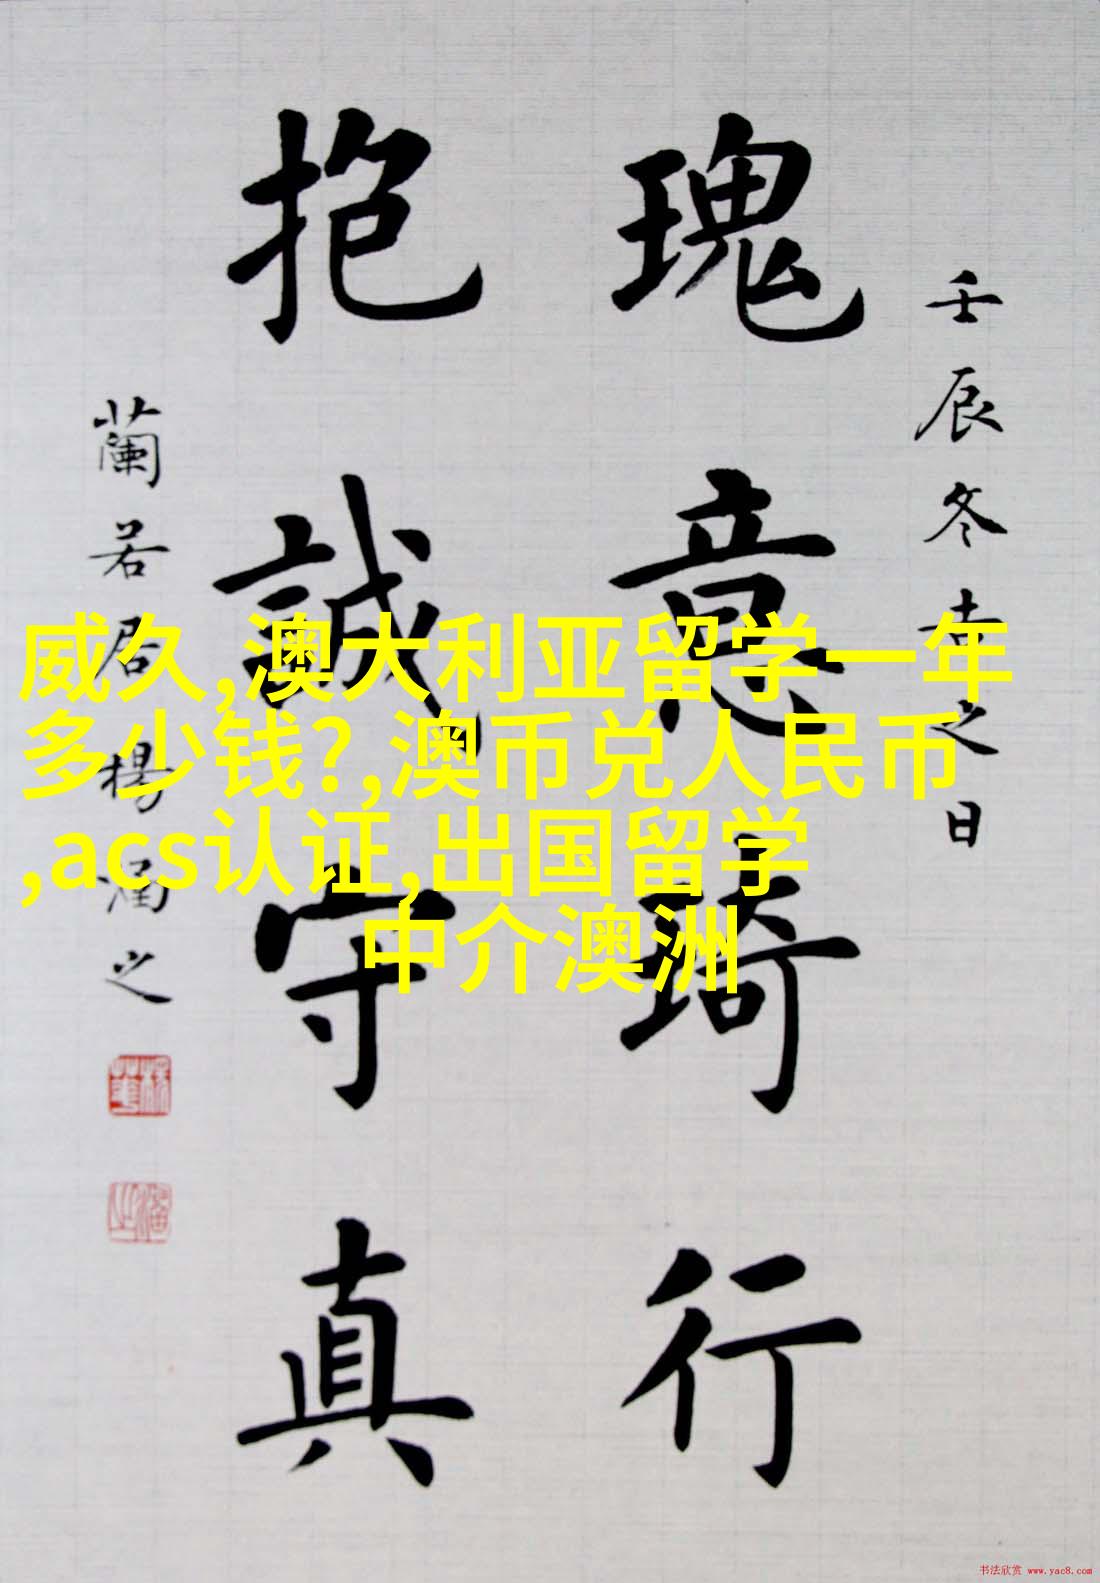 壬辰冬吉之日
瑰意琦行
抱誠守真
蘭若居楊涵之
威久,澳大利亚留学一年
多少钱?,澳币兑人民币
,acs认证,出国留学
中介澳洲
书法欣赏 www.yac8.com